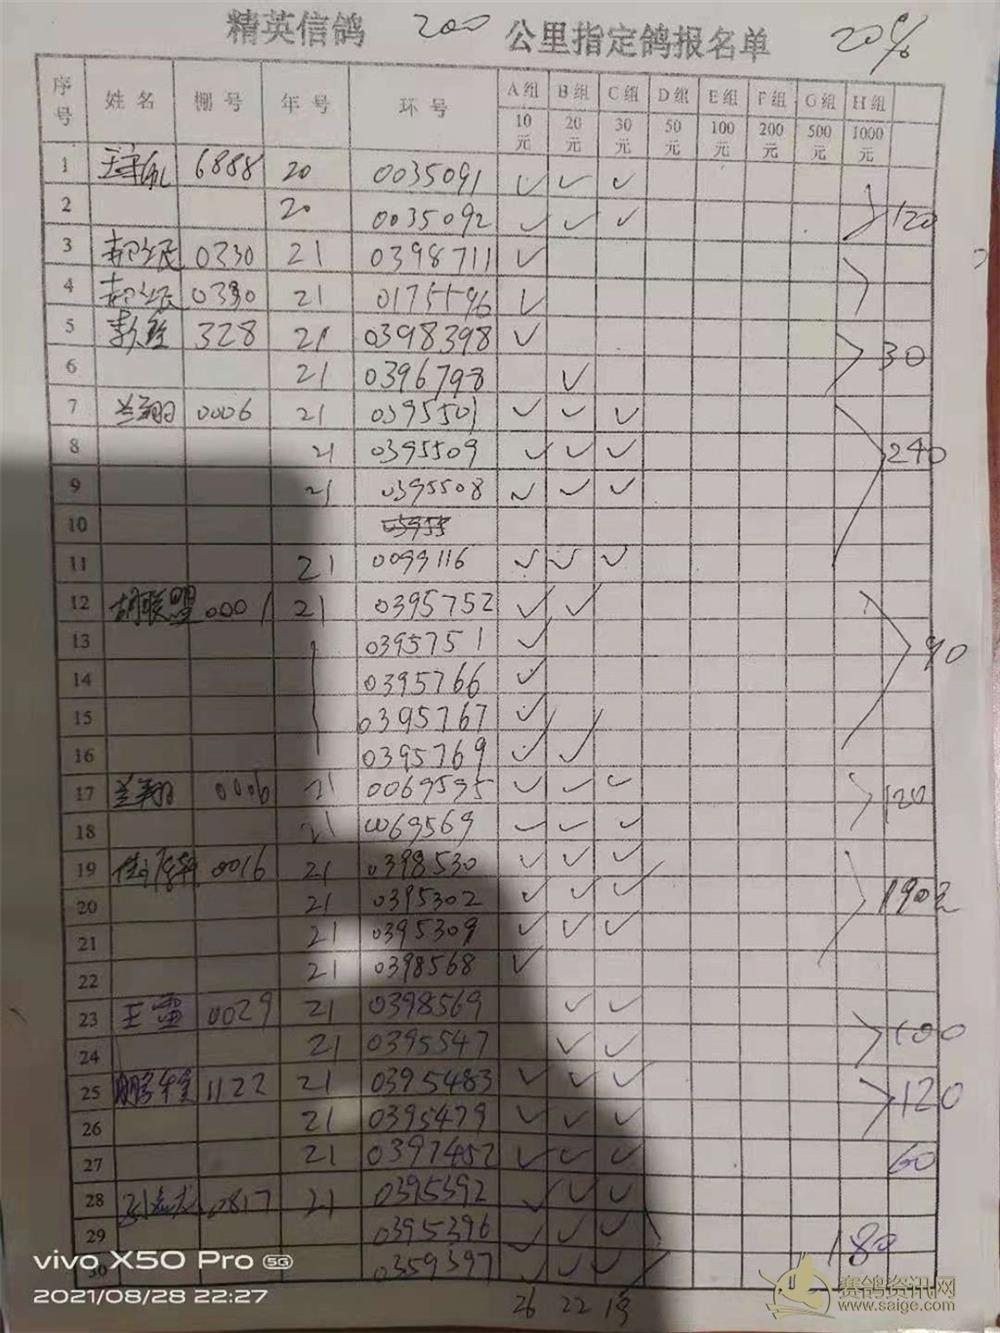 精英信鸽 200 公里指定鸽报名单 20%
序号 姓名 棚号 年号 环号 A组 B组 C组 D组 E组 F组 G组 H组
10元 20元 30元 50元 100元 200元 500元 1000元
1 6888 20 0035091 ✓ ✓ ✓
2 20 0035092 ✓ ✓ ✓ 120
3 0330 21 0398711 ✓
4 0330 21 0175596 ✓
5 328 21 0398398 ✓
6 21 0396798 ✓ 30
7 兰翔 0006 21 0395501 ✓ ✓ ✓
8 21 0395509 ✓ ✓ ✓ 240
9 21 0395508 ✓ ✓ ✓
10
11 21 0099116 ✓ ✓ ✓
12 胡联盟 0001 21 0395752 ✓ ✓
13 0395751 ✓ 90
14 0395766 ✓
15 0395767 ✓
16 0395769 ✓ ✓
17 兰翔 0006 21 0069595 ✓ ✓ ✓ 120
18 21 0069569 ✓ ✓ ✓
19 0016 21 0398530 ✓ ✓ ✓
20 21 0395302 ✓ ✓ ✓ 190
21 21 0395309 ✓ ✓ ✓
22 21 0398568 ✓
23 王雷 0029 21 0398569 ✓ ✓
24 21 0395547 ✓ ✓ 100
25 1122 21 0395483 ✓ ✓ ✓
26 21 0395479 ✓ ✓ ✓ 120
27 21 0397457 ✓ ✓ ✓ 60
28 0817 21 0395392 ✓ ✓ ✓
29 0395396 ✓ ✓ ✓ 180
30 0359397 ✓ ✓ ✓
26 22 19
vivo X50 Pro 5G
2021/08/28 22:27
赛鸽资讯网
www.saige.com